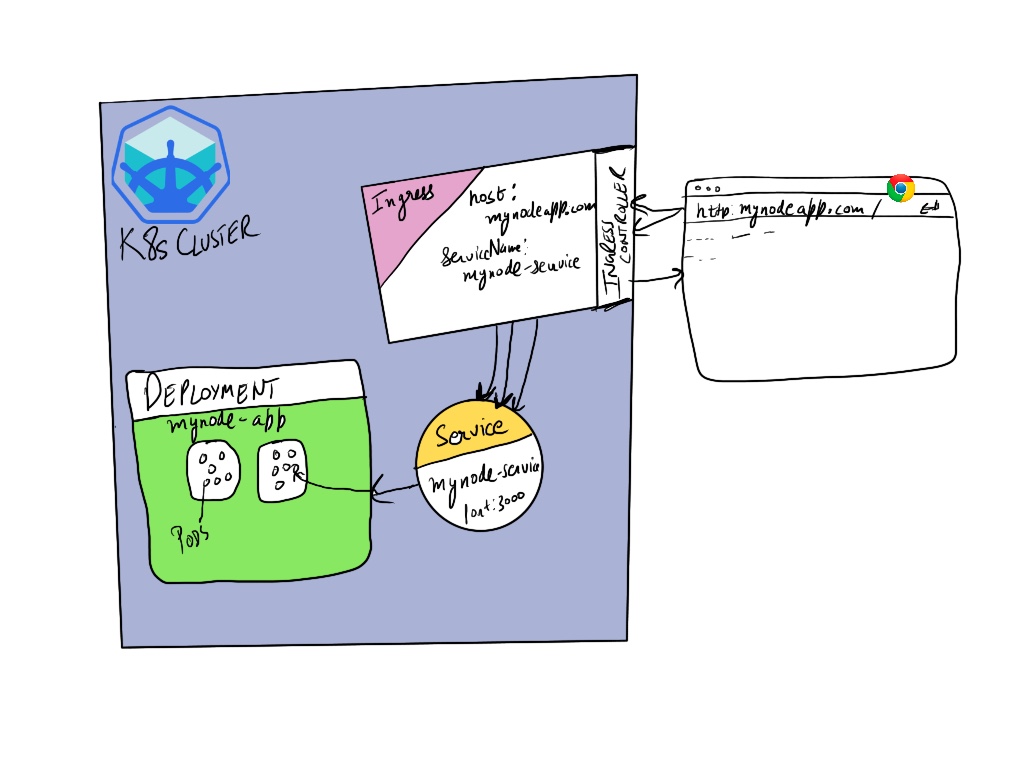 K8s CLUSTER
Ingress
host:
mynodeapp.com
ServiceName:
mynode-service
INGRESS
CONTROLLER
http: mynodeapp.com/
DEPLOYMENT
mynode-app
PODS
Service
mynode-service
port:3000